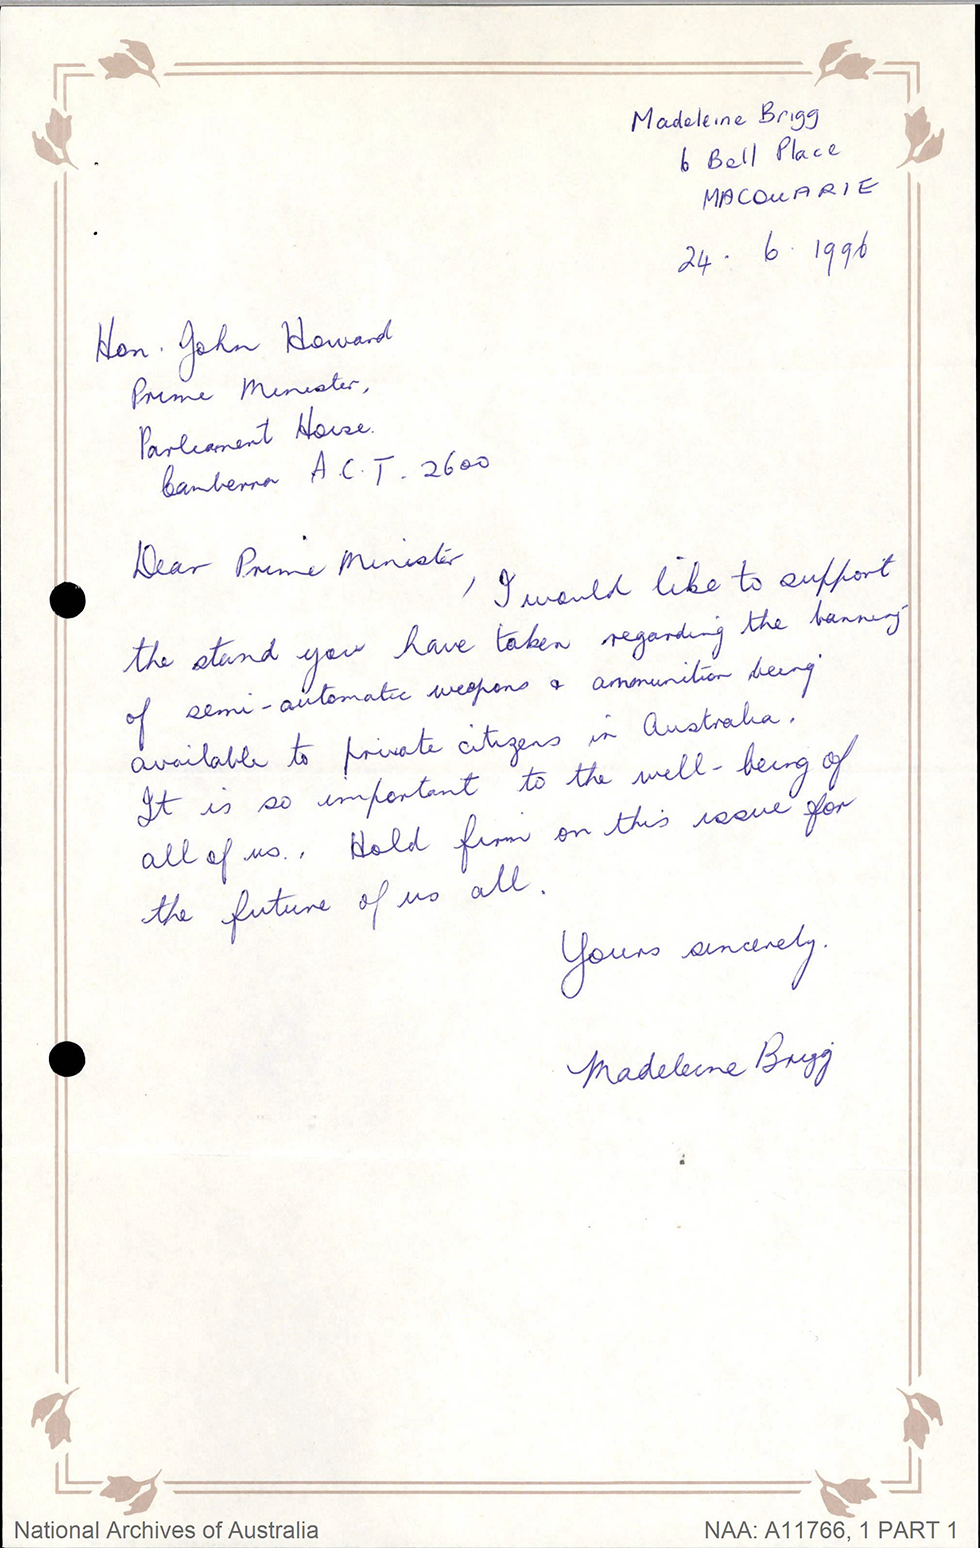 Madeleine Brigg
6 Bell Place
MACQUARIE
24. 6. 1996
Hon. John Howard
Prime Minister,
Parliament House.
Canberra A.C.T. 2600
Dear Prime Minister
, I would like to support
the stand you have taken regarding the banning
of semi-automatic weapons & ammunition being
available to private citizens in Australia.
It is so important to the well-being of
all of us.. Hold firm on this issue for
the future of us all.
Yours sincerely.
Madeleine Brigg
National Archives of Australia
NAA: A11766, 1 PART 1